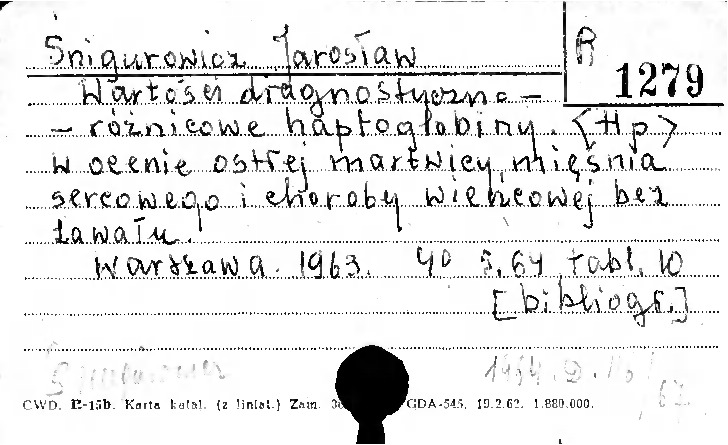 Śnigurowicz Jarosław
R 1279
Wartości diagnostyczno –
– różnicowe haptoglobiny. <Hp>
w ocenie ostrej martwicy mięśnia
sercowego i choroby wieńcowej bez
zawału.
Warszawa. 1963. 4° s. 64, tabl. 10
[bibliogr.]
CWD. R-15b. Karta katal. (z liniat.) Zam. GDA-545. 19.2.62. 1.880.000.